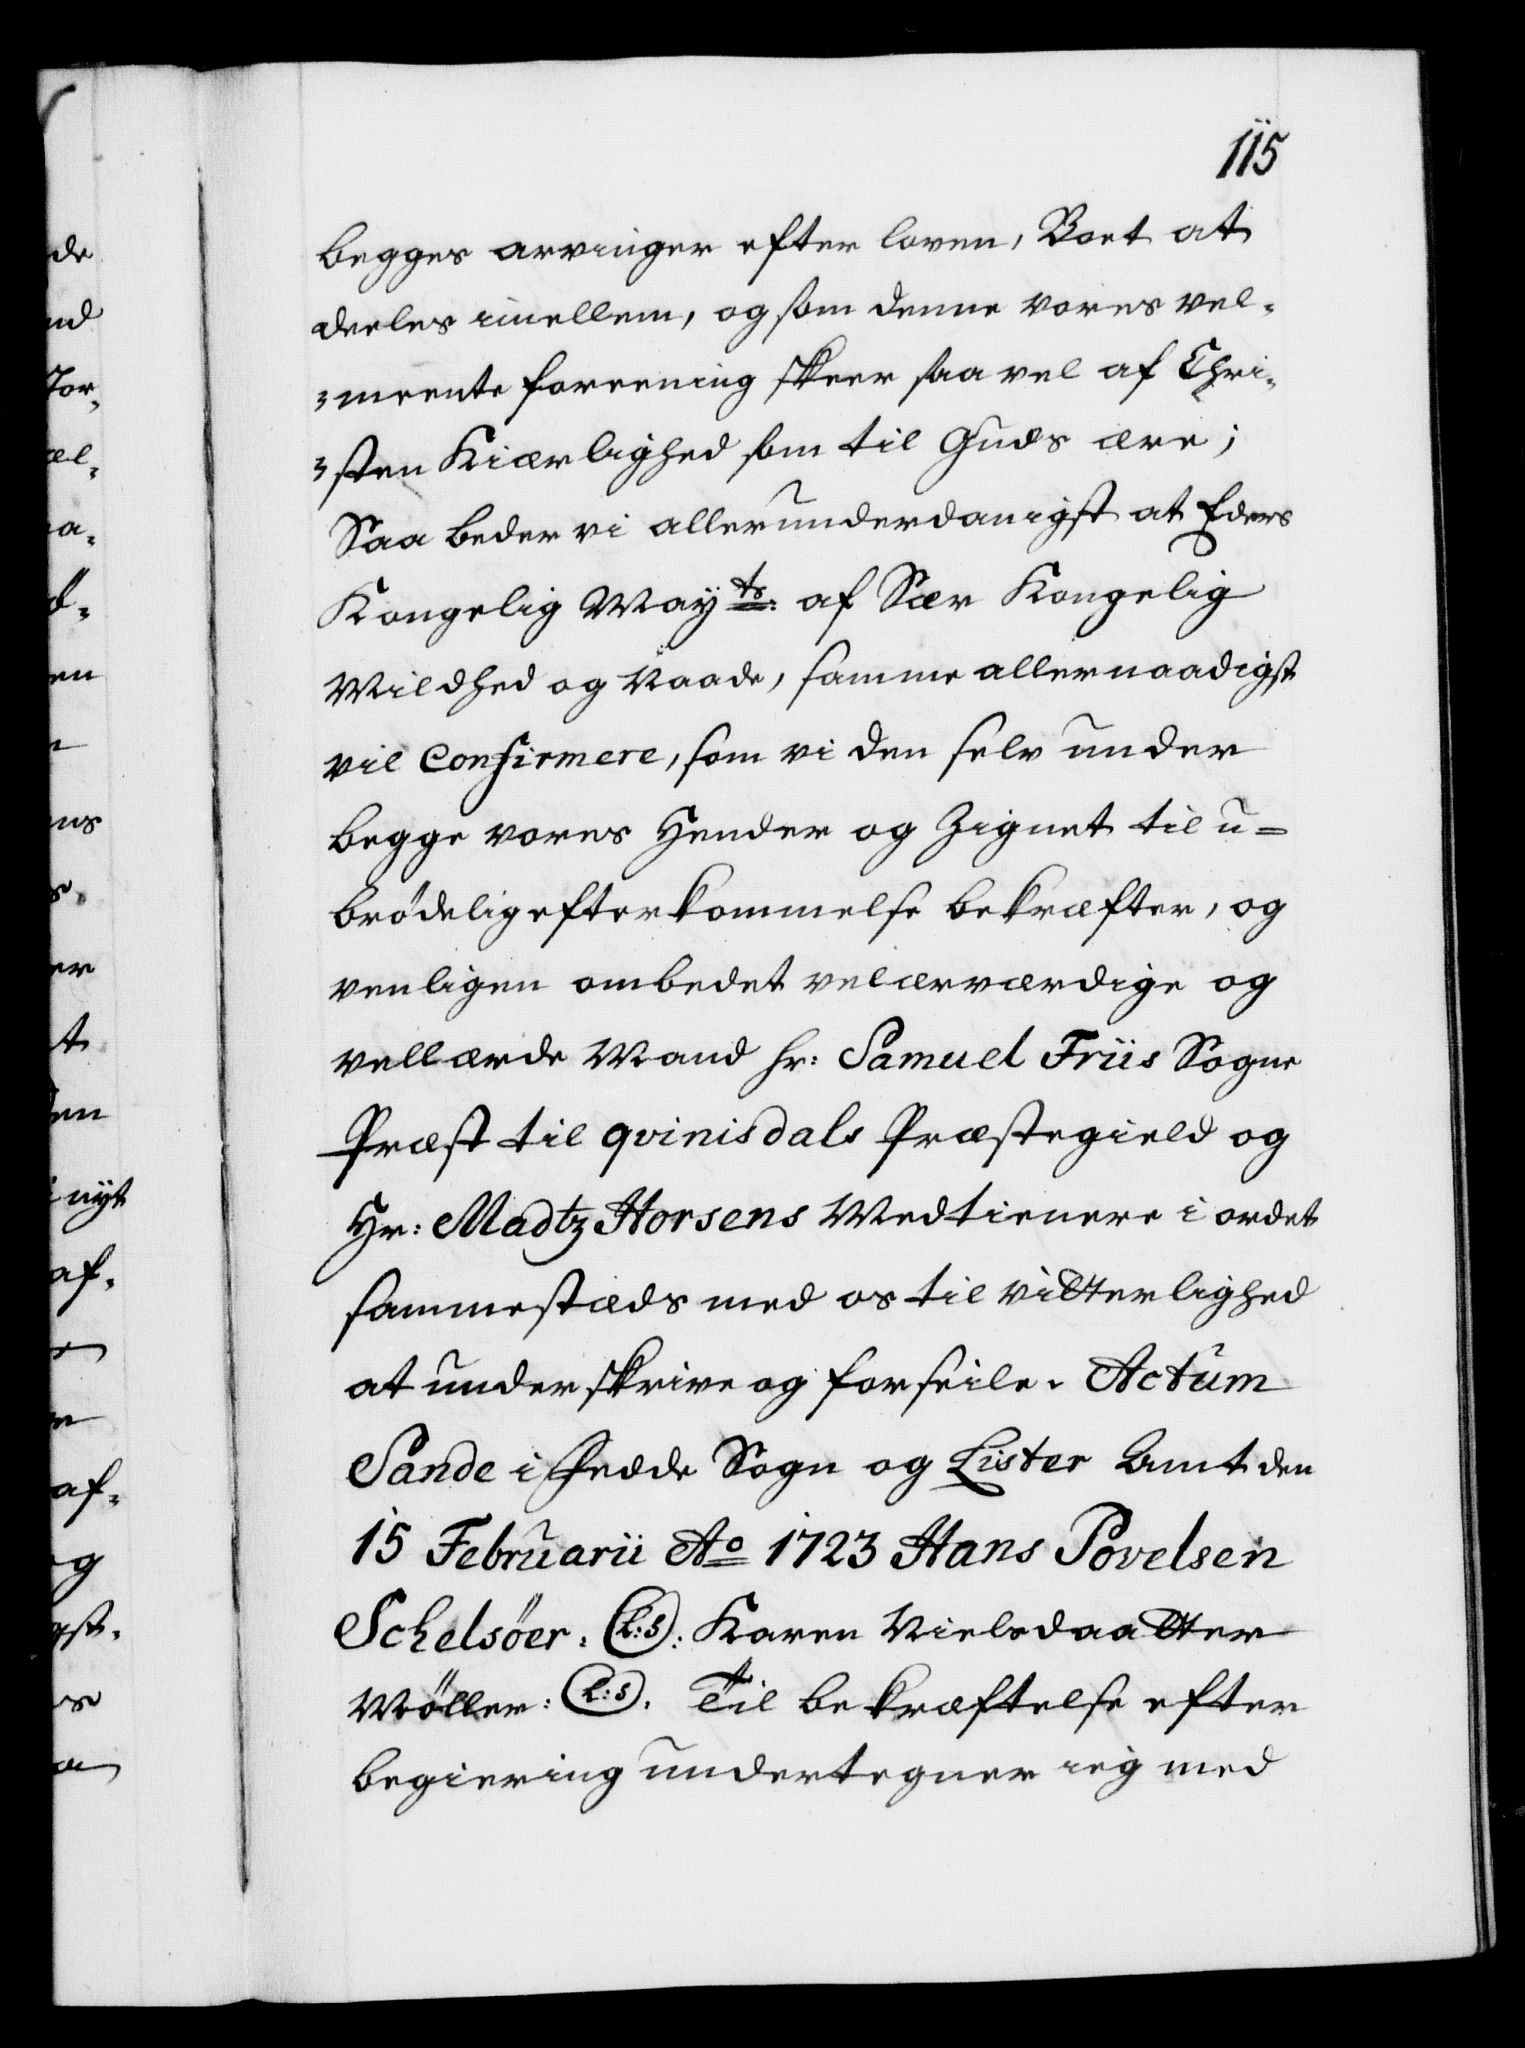 115
begges arvinger efter loven, Boet at
deeles imellem, og som denne vores vel-
meente foreening skeer saa vel af Chri-
sten Kiærlighed som til Guds ære;
Saa beder vi allerunderdanigst at Eders
Kongelig Mayts: af Sær Kongelig
Mildhed og Naade, samme allernaadigst
vil Confirmere, som vi den selv under
begge vores Hender og Zignet til u=
brødelig efterkommelse bekræfter, og
venligen ombedet velærværdige og
vellærde Mand hr: Samuel Friis Sogne
Præst til qvinisdals Præstegield og
Hr: Madtz Horsens Medtienere i ordet
sammestæds med os til Vitterlighed
at underskrive og forseile. Actum
Sande i Fedde Sogn og Lister Amt den
15 Februarii Ao 1723 Hans Povelsen
Schelsöer. (L:S): Karen Nielsdaatter
Møller: (L:S). Til bekræftelse efter
begiering undertegner ieg med
de
nd
Tor-
el-
a-
d-
en
ns
s.
er
t
den
nyt
af-
af-
g
gst-